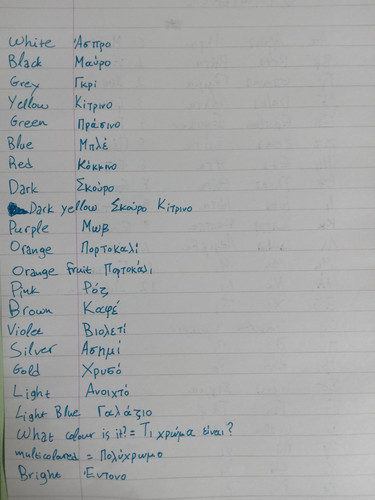 White Άσπρο
Black Μαύρο
Grey Γκρί
Yellow Κίτρινο
Green Πράσινο
Blue Μπλέ
Red Κόκκινο
Dark Σκούρο
Dark yellow Σκούρο Κίτρινο
Purple Μωβ
Orange Πορτοκαλί
Orange fruit Πορτοκάλι
Pink Ρόζ
Brown Καφέ
Violet Βιολετί
Silver Ασημί
Gold Χρυσό
Light Ανοιχτό
Light Blue Γαλάζιο
What colour is it? = Τι χρώμα είναι?
multicolored = Πολύχρωμο
Bright Έντονο